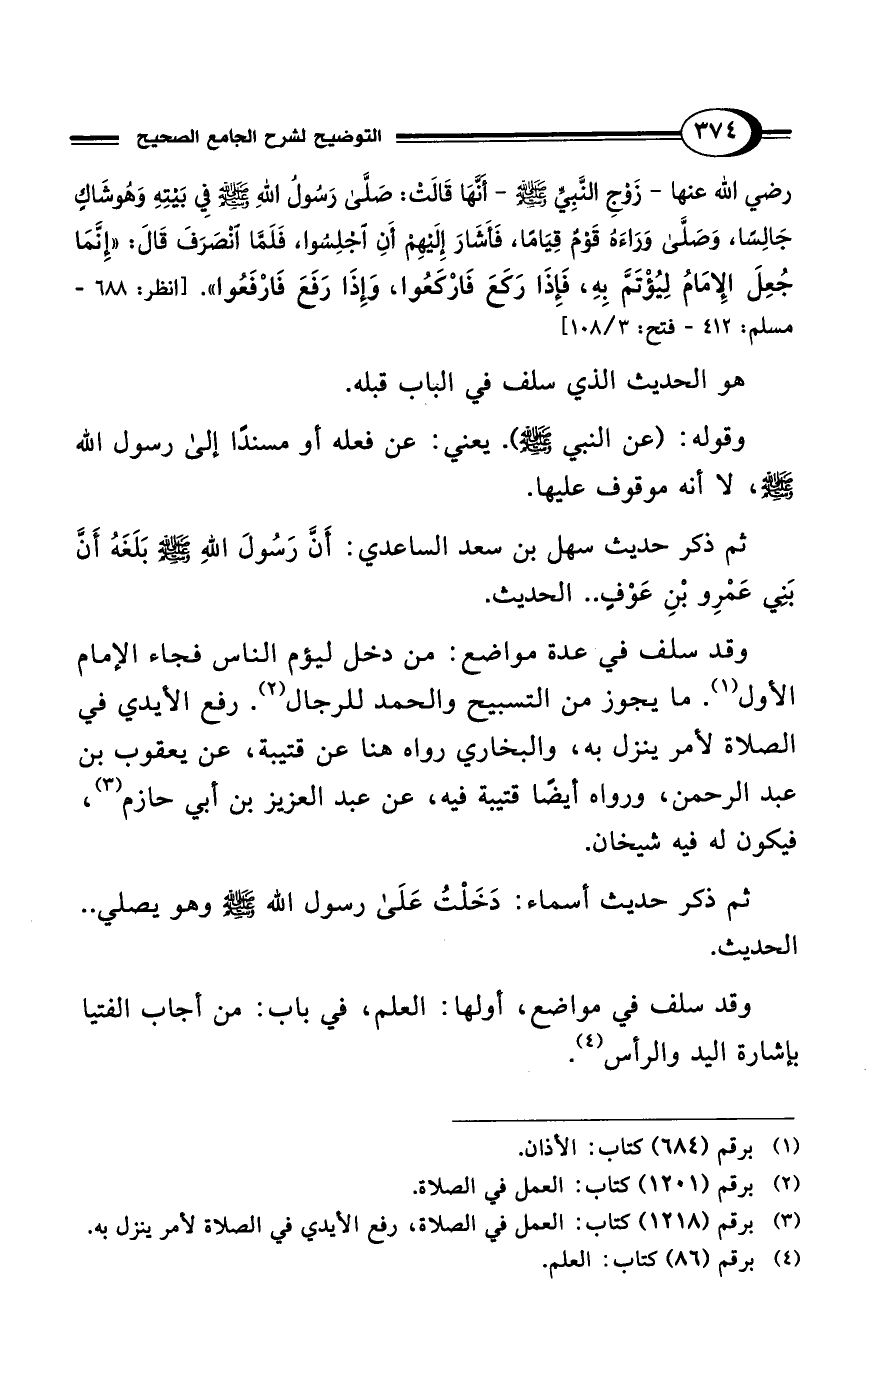 ٣٧٤
التوضيح لشرح الجامع الصحيح
رضي الله عنها - زَوْجِ النَّبِيِّ ﷺ - أَنَّهَا قَالَتْ: صَلَّىٰ رَسُولُ اللهِ ﷺ فِي بَيْتِهِ وَهُوَشَاكٍ
جَالِسًا، وَصَلَّىٰ وَرَاءَهُ قَوْمٌ قِيَامًا، فَأَشَارَ إِلَيْهِمْ أَنِ ٱجْلِسُوا، فَلَمَّا ٱنْصَرَفَ قَالَ: «إِنَّمَا
جُعِلَ الإِمَامُ لِيُؤْتَمَّ بِهِ، فَإِذَا رَكَعَ فَارْكَعُوا، وَإِذَا رَفَعَ فَارْفَعُوا». [انظر: ٦٨٨ -
مسلم: ٤١٢ - فتح: ١٠٨/٣]
هو الحديث الذي سلف في الباب قبله.
وقوله: (عن النبي ﷺ). يعني: عن فعله أو مسندًا إلىٰ رسول الله
ﷺ، لا أنه موقوف عليها.
ثم ذكر حديث سهل بن سعد الساعدي: أَنَّ رَسُولَ اللهِ ﷺ بَلَغَهُ أَنَّ
بَنِي عَمْرِو بْنِ عَوْفٍ.. الحديث.
وقد سلف في عدة مواضع: من دخل ليؤم الناس فجاء الإمام
الأول(١). ما يجوز من التسبيح والحمد للرجال(٢). رفع الأيدي في
الصلاة لأمر ينزل به، والبخاري رواه هنا عن قتيبة، عن يعقوب بن
عبد الرحمن، ورواه أيضًا قتيبة فيه، عن عبد العزيز بن أبي حازم(٣)،
فيكون له فيه شيخان.
ثم ذكر حديث أسماء: دَخَلْتُ عَلَىٰ رسول الله ﷺ وهو يصلي..
الحديث.
وقد سلف في مواضع، أولها: العلم، في باب: من أجاب الفتيا
بإشارة اليد والرأس(٤).
(١) برقم (٦٨٤) كتاب: الأذان.
(٢) برقم (١٢٠١) كتاب: العمل في الصلاة.
(٣) برقم (١٢١٨) كتاب: العمل في الصلاة، رفع الأيدي في الصلاة لأمر ينزل به.
(٤) برقم (٨٦) كتاب: العلم.